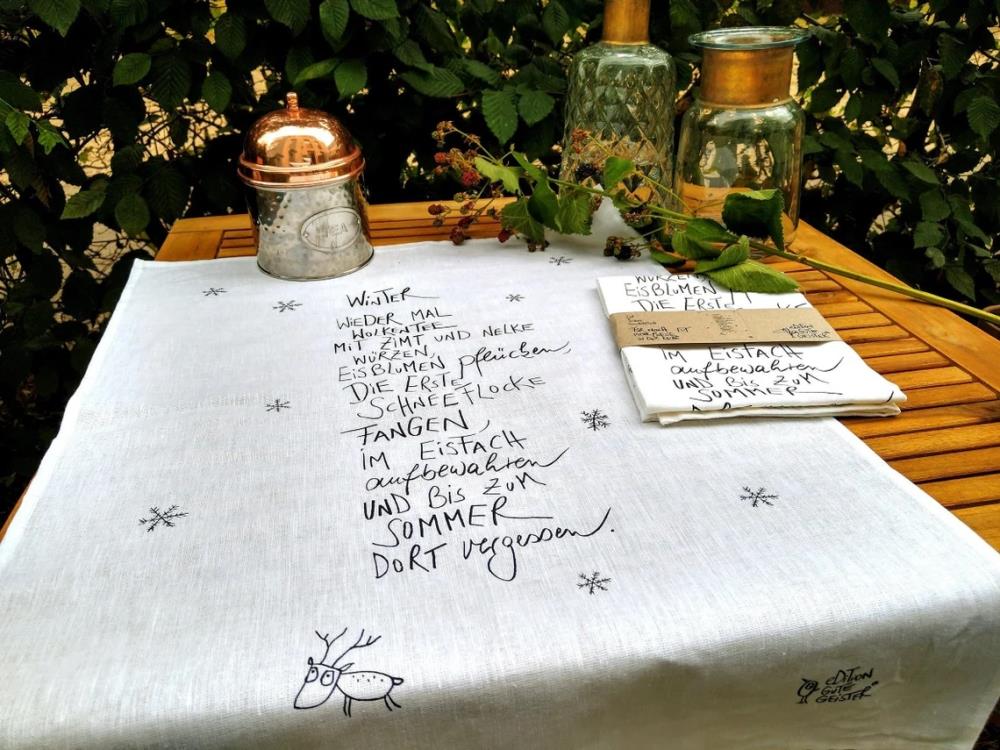 WINTER
WiEDER MAL
WOLKENTEE
MiT ZiMT UND NELKE
WÜRZEN,
EiSBLUMEN pflücken,
DiE ERSTE
SCHNEEFLOCKE
FANGEN,
iM EiSFACH
aufbewahren
UND BiS ZUM
SOMMER
DORT vergessen.
EDiTiON
GUTE
GEiSTER
WÜRZEN,
EiSBLUMEN
DiE ERSTE
iM EiSFACH
aufbewahren
UND BiS ZUM
SOMMER